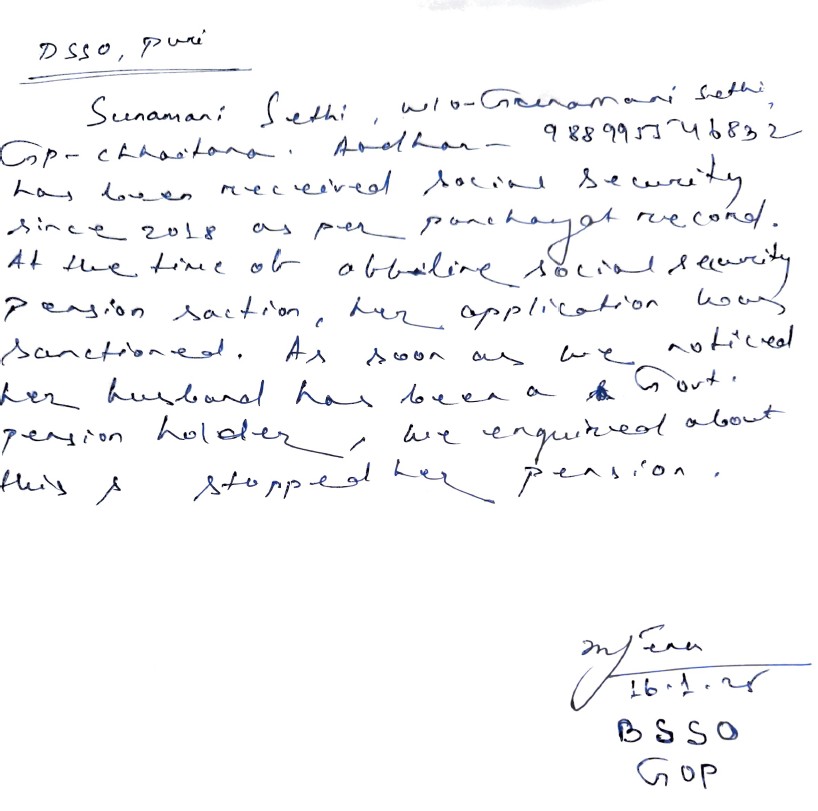 DSSO, Puri
Sunamani Sethi, w/o-Gunamani Sethi,
GP- chhaitana. Aadhar- 988995546832
has been received social security
since 2018 as per panchayat record.
At the time of offline social security
pension saction, her application was
sanctioned. As soon as we noticed
her husband has been a Govt.
pension holder, we enquired about
this & stopped her pension.
16.1.25
BSSO
GOP